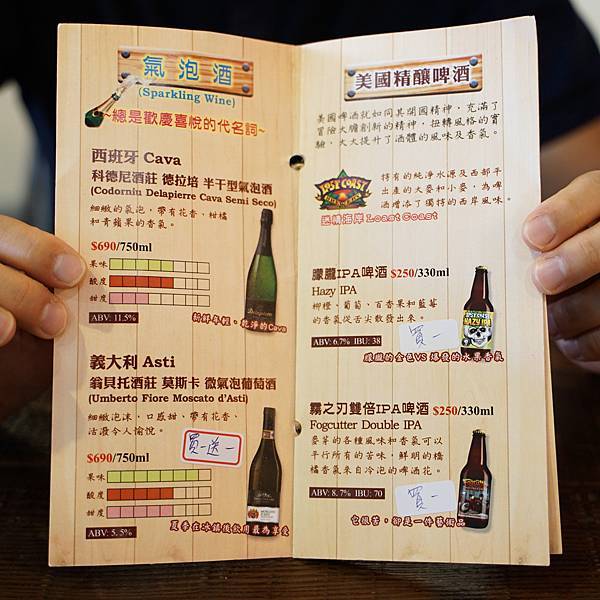 氣泡酒
(Sparkling Wine)
~總是歡慶喜悅的代名詞~
西班牙 Cava
科德尼酒莊 德拉培 半干型氣泡酒
(Codorniu Delapierre Cava Semi Seco)
細緻的氣泡，帶有花香、柑橘
和青蘋果的香氣。
$690/750ml
果味
酸度
甜度
ABV: 11.5%
新鮮年輕。乾淨的Cava
義大利 Asti
翁貝托酒莊 莫斯卡 微氣泡葡萄酒
(Umberto Fiore Moscato d'Asti)
細緻泡沫，口感甜、帶有花香、
活潑令人愉悅。
買一送一
$690/750ml
果味
酸度
甜度
ABV: 5.5%
夏季在冰鎮後飲用最為享受
美國精釀啤酒
美國啤酒就如同其開國精神，充滿了
冒險大膽創新的精神，扭轉風格的實
驗，大大提升了酒體的風味及香氣。
LOST COAST
特有的純淨水源及西部平
出產的大麥和小麥，為啤
酒增添了獨特的西岸風味。
迷情海岸 Loast Coast
朦朧IPA啤酒 $250/330ml
Hazy IPA
柳橙、葡萄、百香果和藍莓
的香氣從舌尖散發出來。
買一
HAZY IPA
ABV: 6.7% IBU: 38
朦朧的金色VS 爆發的水果香氣
霧之刃雙倍IPA啤酒 $250/330ml
Fogcutter Double IPA
麥芽的各種風味和香氣可以
平行所有的苦味，鮮明的橋
橘香氣來自冷泡的啤酒花。
買一
ABV: 8.7% IBU: 70
它很苦，卻是一件藝術品